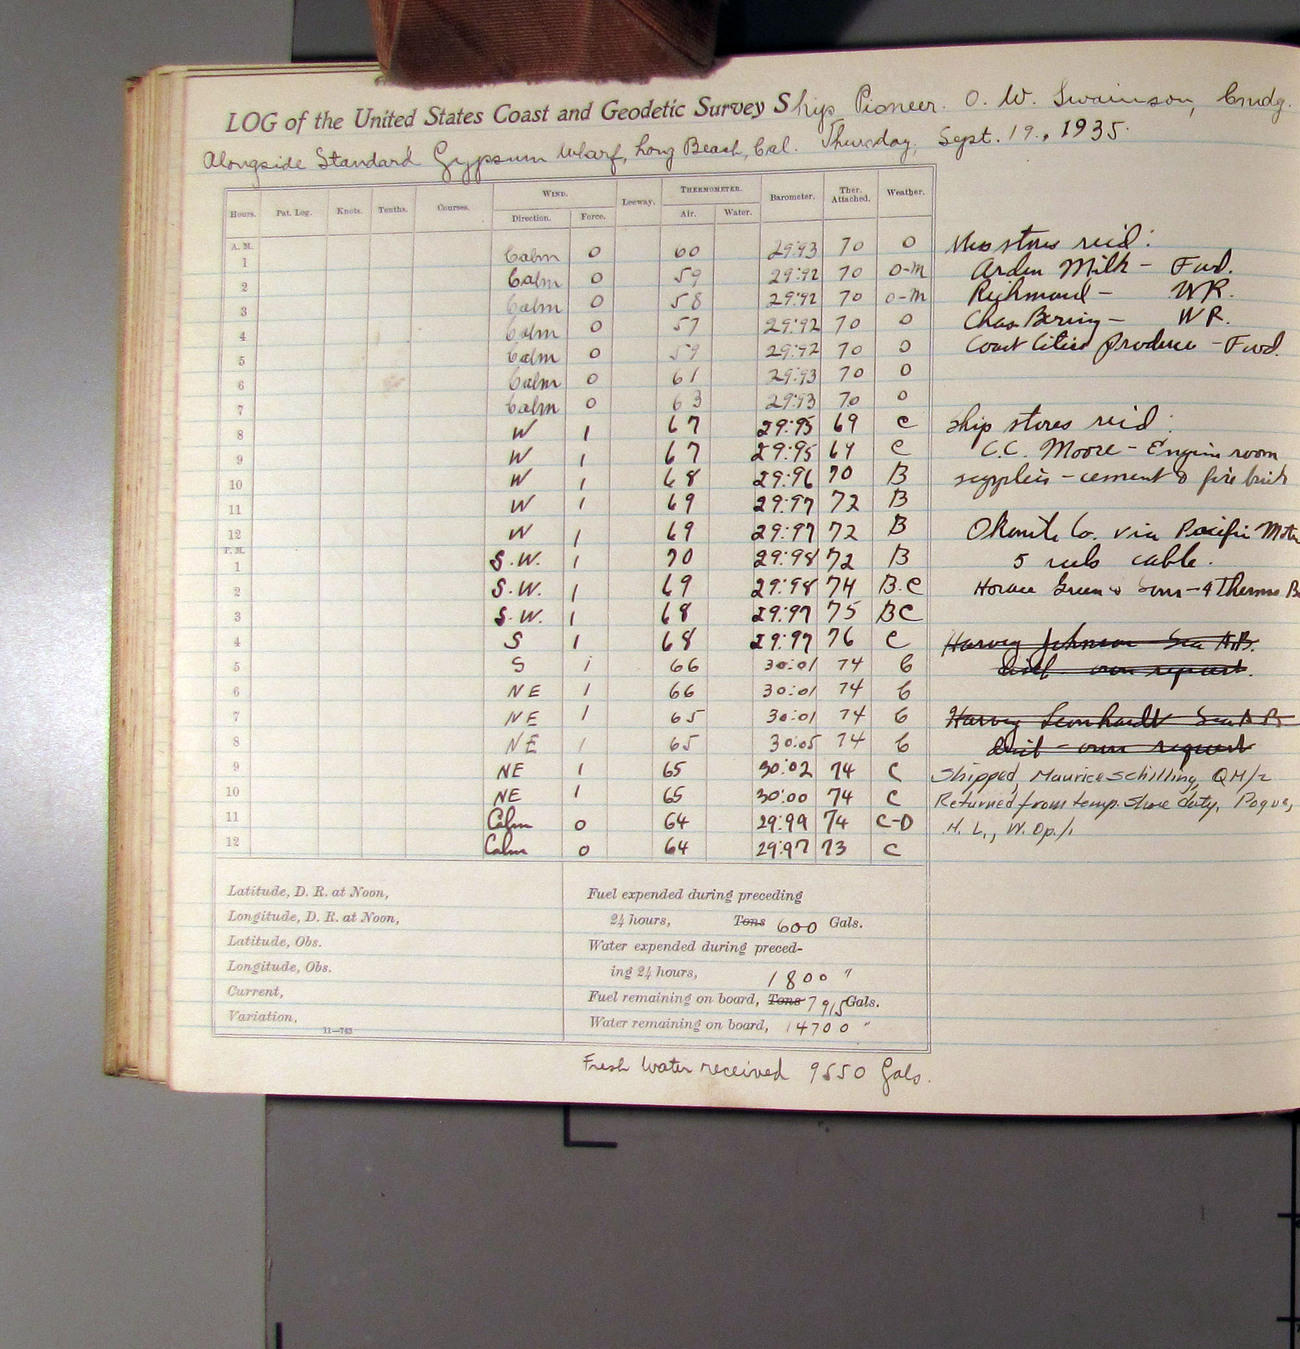 LOG of the United States Coast and Geodetic Survey Ship Pioneer. O. W. Swainson, Cmdg.
Alongside Standard Gypsum Wharf, Long Beach, Cal. Thursday, Sept. 19, 1935.
Hours. Pat. Log. Knots. Tenths. Courses. WIND. Direction. Force. Leeway. THERMOMETER. Air. Water. Barometer. Ther. Attached. Weather.
A. M.
1 Calm 0 60 29:93 70 0 Mess stores rec'd:
2 Calm 0 59 29:92 70 0-M Arden Milk - Fwd.
3 Calm 0 58 29:92 70 0-M Richmond - WR.
4 Calm 0 57 29:92 70 0 Chas Bering - WR.
5 Calm 0 59 29:92 70 0 Coast Cities Produce - Fwd.
6 Calm 0 61 29:93 70 0
7 Calm 0 63 29:93 70 0
8 W 1 67 29:95 69 C Ship stores rec'd:
9 W 1 67 29:95 69 C C.C. Moore - Engine room
10 W 1 68 29:96 70 B supplies - cement & fire brick
11 W 1 69 29:97 72 B
12 W 1 69 29:97 72 B Okonite Co. via Pacific
P. M.
1 S.W. 1 70 29:98 72 B 5 reels cable.
2 S.W. 1 69 29:98 74 B.C Horace Green & Sons - 4 Thermo
3 S.W. 1 68 29:97 75 BC
4 S 1 68 29:97 76 C Harvey Johnson Sea A.B.
5 S 1 66 30:01 74 C disch. own request.
6 NE 1 66 30:01 74 C
7 NE 1 65 30:01 74 C Harvey Leonhardt Sea A B
8 NE 1 65 30:05 74 C disch. own request
9 NE 1 65 30:02 74 C Shipped, Maurice Schilling, QM/2
10 NE 1 65 30:00 74 C Returned from temp. shore duty, Pogue,
11 Calm 0 64 29:99 74 C-0 H. L., W. Op./1
12 Calm 0 64 29:97 73 C
Latitude, D. R. at Noon,
Longitude, D. R. at Noon,
Latitude, Obs.
Longitude, Obs.
Current,
Variation,
11—763
Fuel expended during preceding
24 hours, Tons 600 Gals.
Water expended during preced-
ing 24 hours, 1800 "
Fuel remaining on board, Tons 7915 Gals.
Water remaining on board, 14700 "
Fresh Water received 9550 Gals.